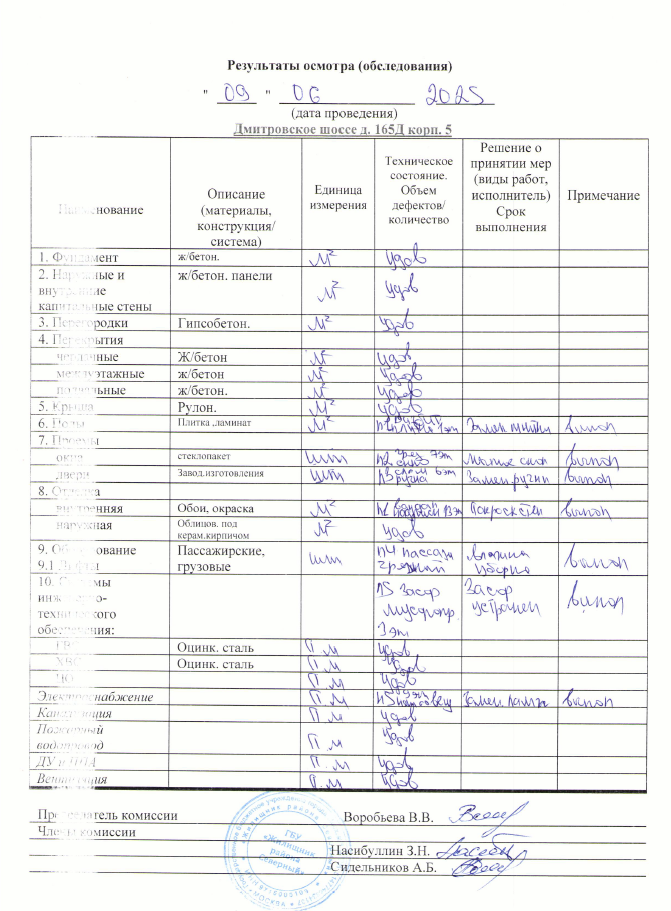 Результаты осмотра (обследования)
" 09 " 06 2025
(дата проведения)
Дмитровское шоссе д. 165Д корп. 5
Наименование
Описание (материалы, конструкция/ система)
Единица измерения
Техническое состояние. Объем дефектов/ количество
Решение о принятии мер (виды работ, исполнитель) Срок выполнения
Примечание
1. Фундамент ж/бетон. м² удов
2. Наружные и внутренние капитальные стены ж/бетон. панели м² удов
3. Перегородки Гипсобетон. м² удов
4. Перекрытия
чердачные Ж/бетон м² удов
междуэтажные ж/бетон м² удов
подвальные ж/бетон. м² удов
5. Крыша Рулон. м² удов
6. Полы Плитка ,ламинат м² плитки 1эт выпол
7. Проемы
окна стеклопакет шт п2 7эт выпол
двери Завод.изготовления шт п3 6эт ручка Замен.ручки выпол
8. Отделка
внутренняя Обои, окраска м² выпол
наружная Облицов. под керам.кирпичом м² удов
9. Оборудование Пассажирские,
9.1 Лифты грузовые шт п4 пассаж грязный уборка выпол
10. Системы инженерно-технического обеспечения: п5 Засор мусоропр. 3эт Засор устранен выпол
ГВС Оцинк. сталь П м удов
ХВС Оцинк. сталь П м удов
ЦО П м удов
Электроснабжение П м Замен.лампа выпол
Канализация П м удов
Пожарный водопровод П м удов
ДУ и ППА П м удов
Вентиляция П м удов
Председатель комиссии Воробьева В.В.
Члены комиссии
Насибуллин З.Н.
Сидельников А.Б.
ГБУ
«Жилищник
района
Северный»